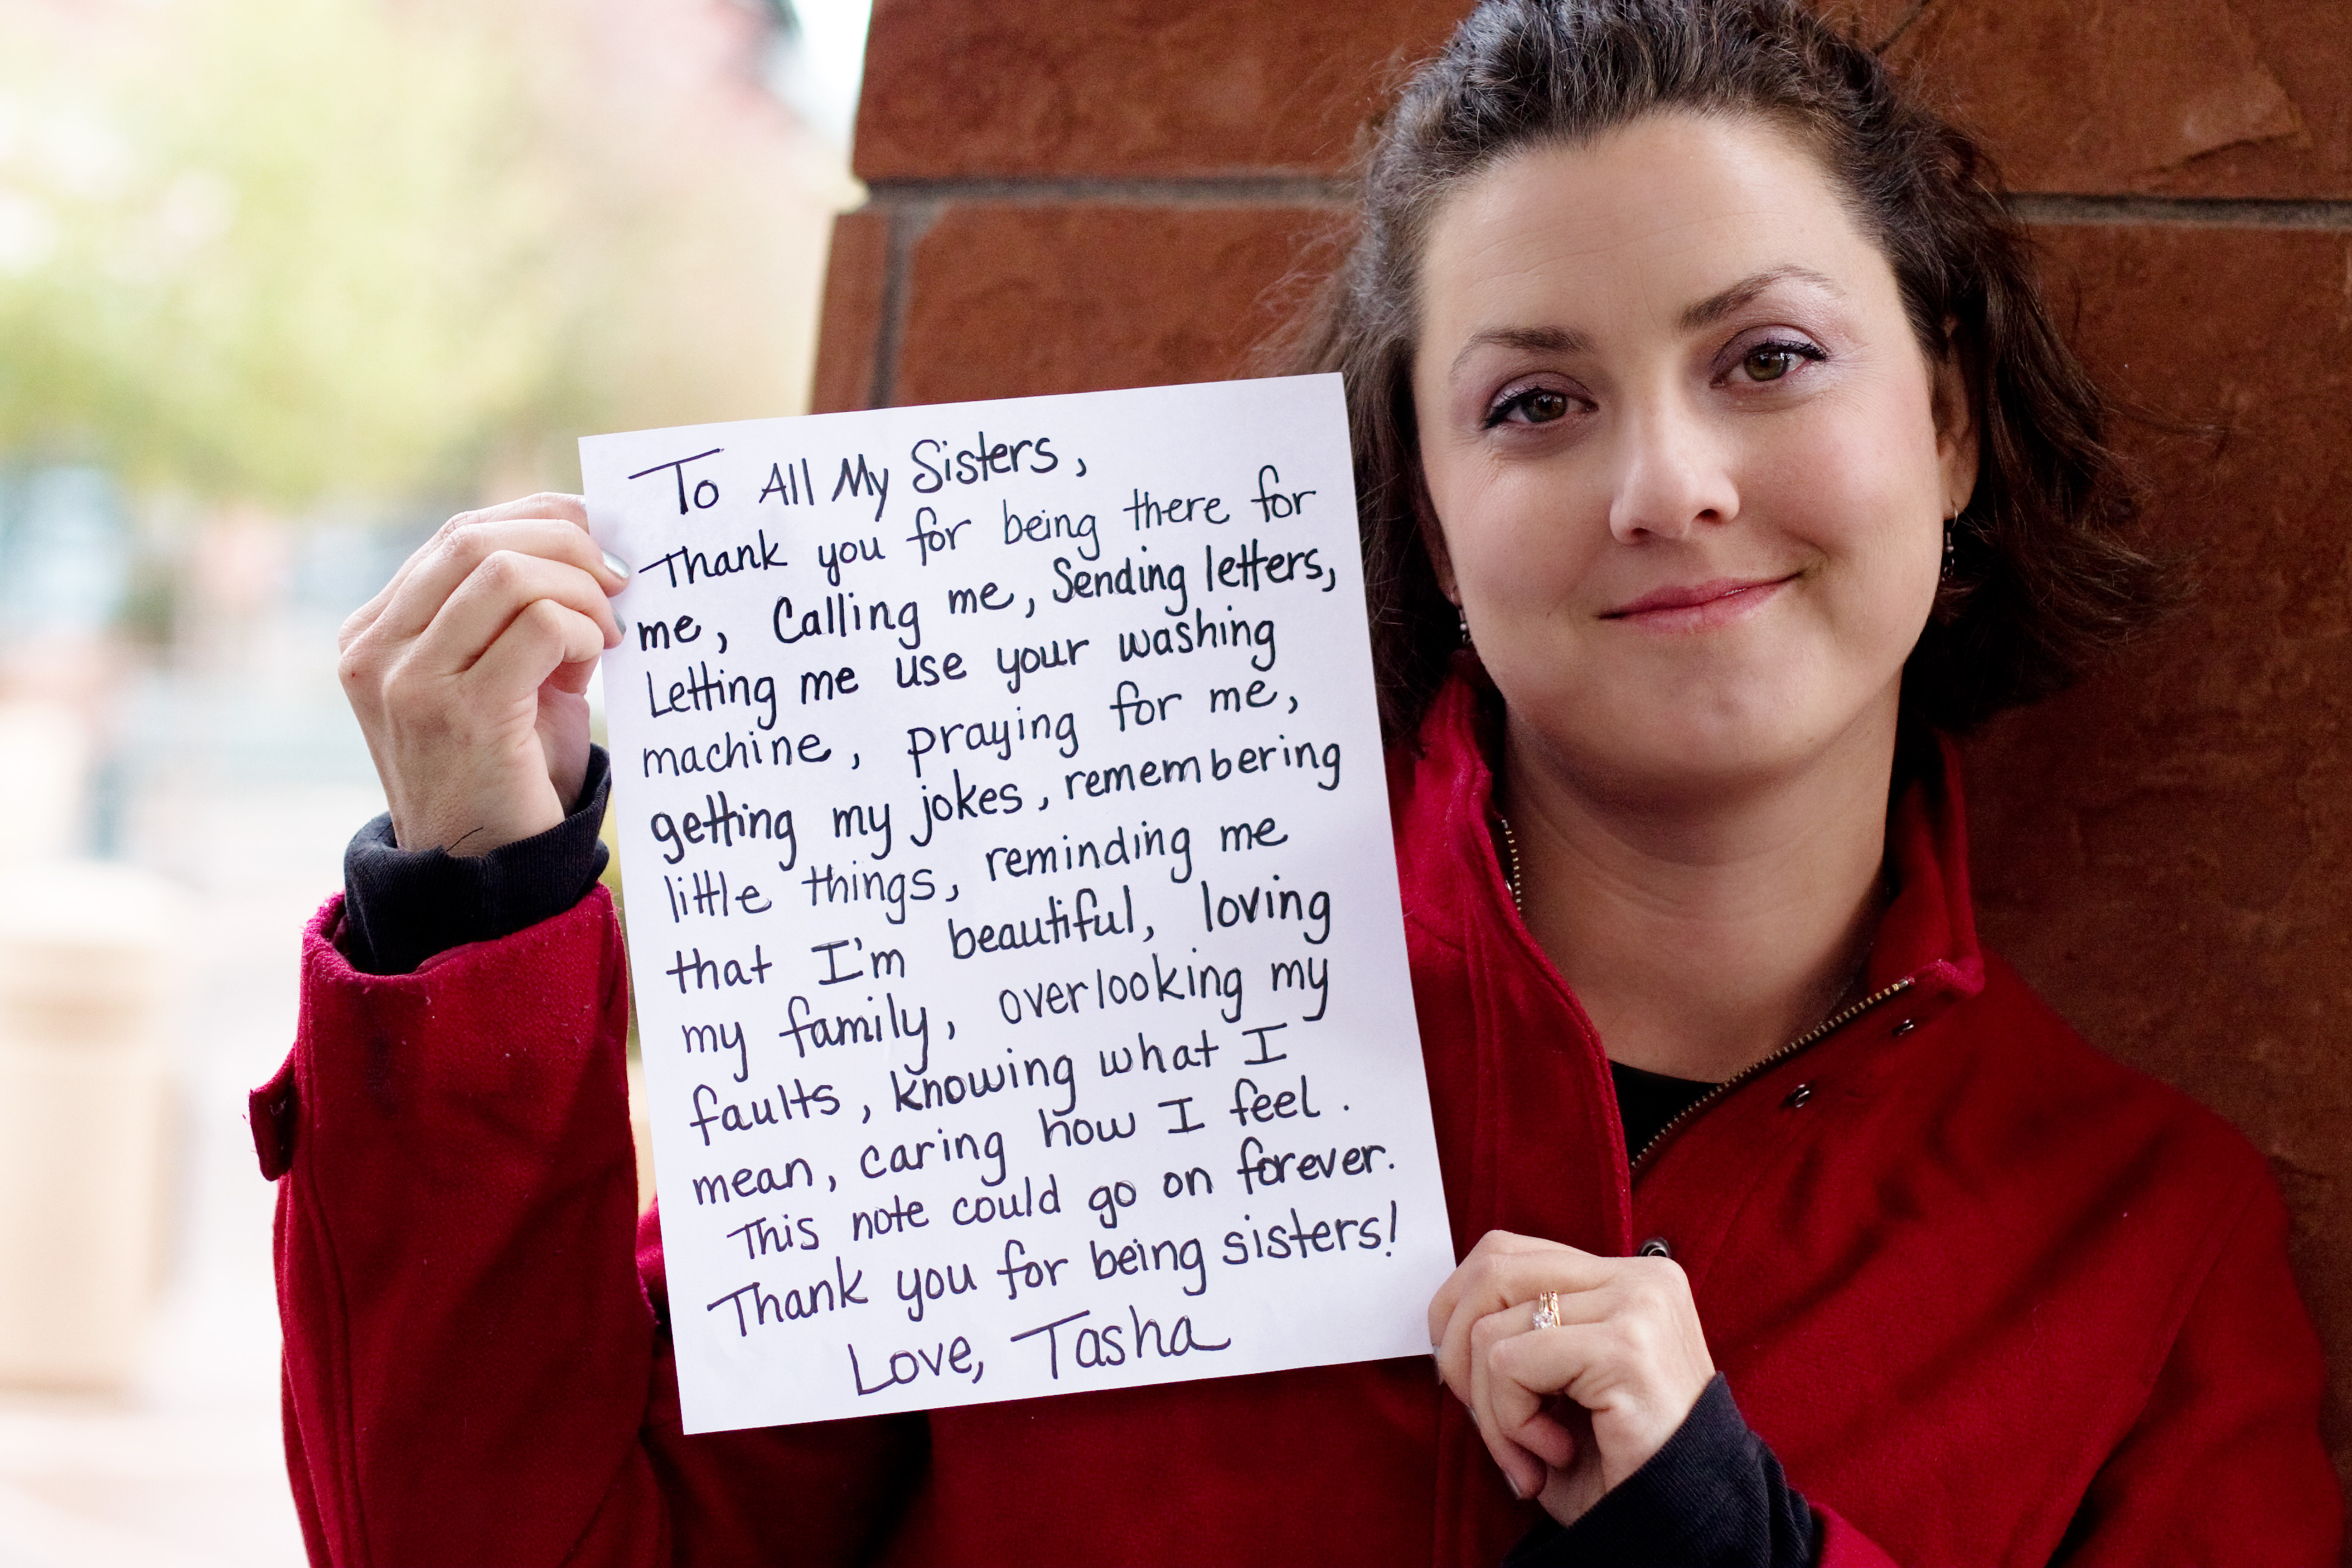 To All My Sisters,
Thank you for being there for
me, Calling me, Sending letters,
Letting me use your washing
machine, praying for me,
getting my jokes, remembering
little things, reminding me
that I'm beautiful, loving
my family, overlooking my
faults, knowing what I
mean, caring how I feel.
This note could go on forever.
Thank you for being sisters!
Love, Tasha